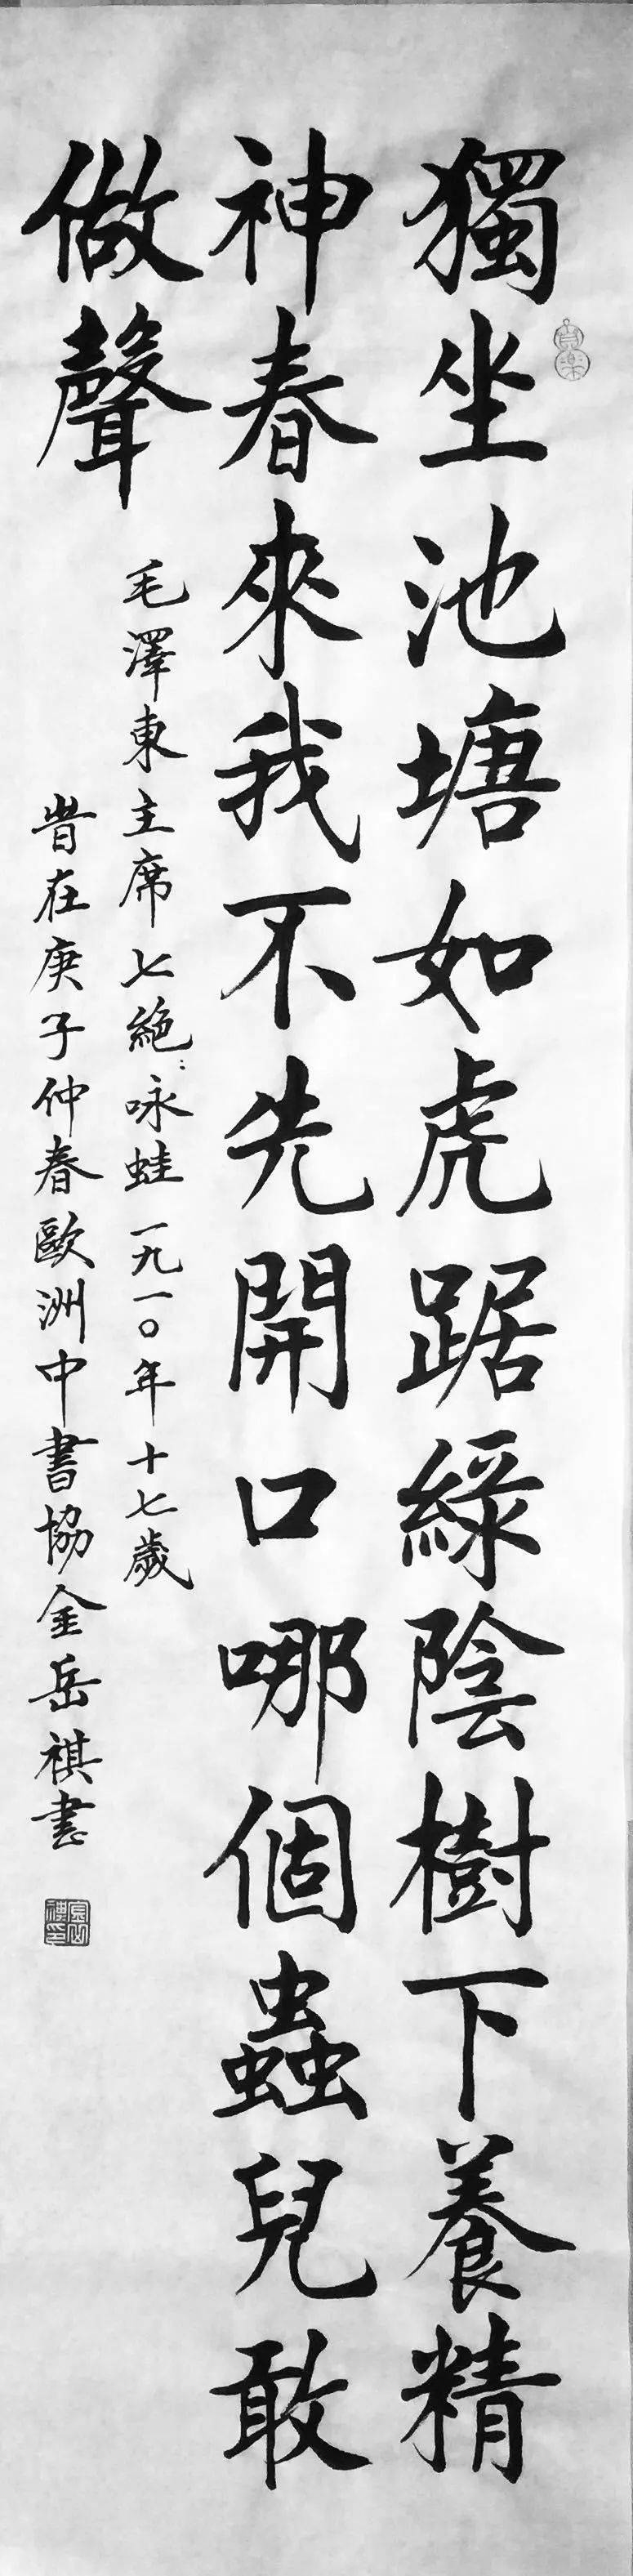 獨坐池塘如虎踞綠陰樹下養精
神春來我不先開口哪個蟲兒敢
做聲
毛澤東主席七絕：咏蛙一九一〇年十七歲
昔在庚子仲春歐洲中書協金岳祺書